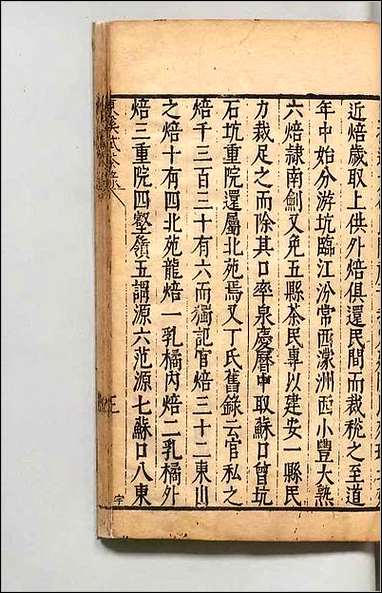 近焙歲取上供外焙俱還民間而裁稅之至道
年中始分游坑臨江汾常西濛洲西小豐大熟
六焙隸南劍又免五縣茶民專以建安一縣民
力裁足之而除其口率泉慶曆中取蘇口曾坑
石坑重院還屬北苑焉又丁氏舊錄云官私之
焙千三百三十有六而獨記官焙三十二東山
之焙十有四北苑龍焙一乳橘內焙二乳橘外
焙三重院四壑嶺五謂源六范源七蘇口八東
東溪試茶錄
字